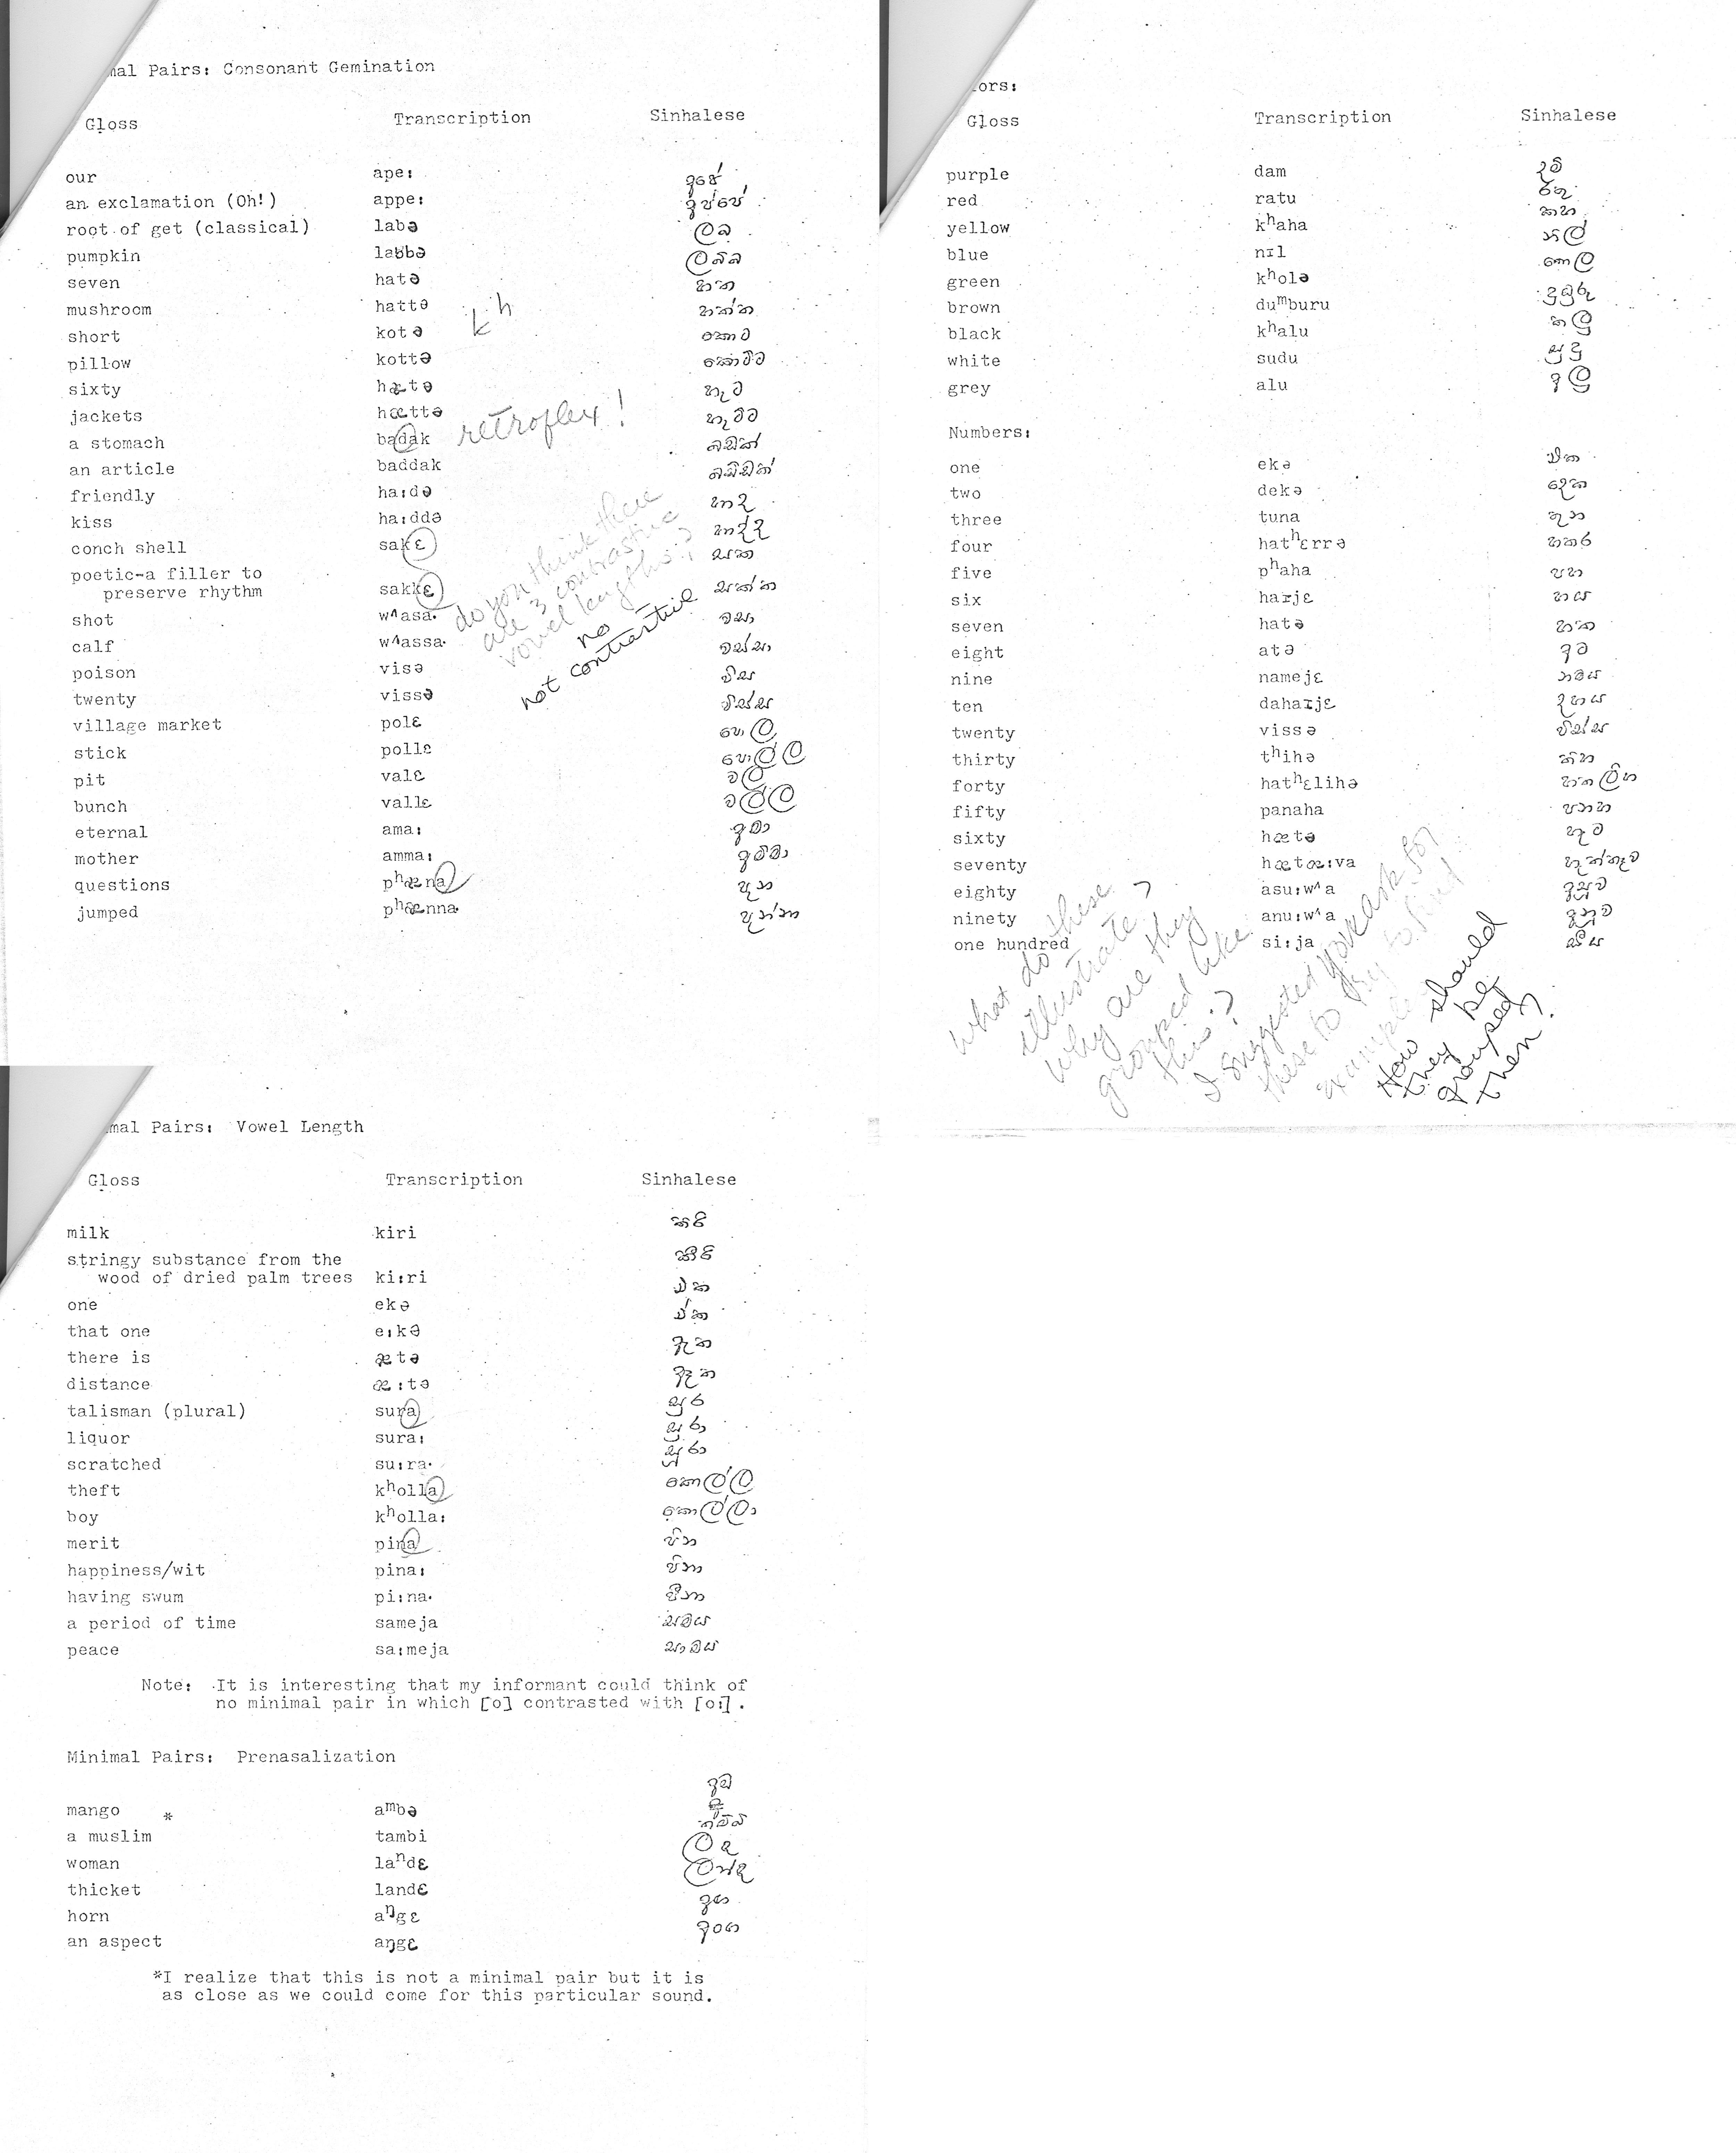 mal Pairs: Consonant Gemination
Gloss Transcription Sinhalese
our ape: අපේ
an exclamation (Oh!) appe: අප්පේ
root of get (classical) labə ලබ
pumpkin labbə ලබ්බ
seven hatə හත
mushroom hattə හත්ත
short kotə කොට
pillow kottə කොට්ට
sixty hætə හැට
jackets hættə හැට්ට
a stomach badak බඩක්
an article baddak බඩ්ඩක්
friendly ha:də හාද
kiss ha:ddə හාද්ද
conch shell sakɛ සක
poetic-a filler to
preserve rhythm sakkɛ සක්ක
shot wʌasa· වසා
calf wʌassa· වස්සා
poison visə විස
twenty vissə විස්ස
village market polɛ පොල
stick pollɛ පොල්ල
pit valɛ වල
bunch vallɛ වල්ල
eternal ama: අමා
mother amma: අම්මා
questions pʰæna පැන
jumped pʰænna· පැන්නා
kʰ
retroflex!
do you think there
are 3 contrastive
vowel lengths?
no
not contrastive
ors:
Gloss Transcription Sinhalese
purple dam දම්
red ratu රතු
yellow kʰaha කහ
blue nɪl නිල්
green kʰolə කොල
brown duᵐburu දුඹුරු
black kʰalu කලු
white sudu සුදු
grey alu අලු
Numbers:
one ekə එක
two dekə දෙක
three tuna තුන
four hatʰɛrrə හතර
five pʰaha පහ
six haɪjɛ හය
seven hatə හත
eight atə අට
nine namejɛ නමය
ten dahaɪjɛ දහය
twenty vissə විස්ස
thirty tʰihə තිහ
forty hatʰɛlihə හතලිහ
fifty panaha පනහ
sixty hætə හැට
seventy hætæ:va හැත්තෑව
eighty asu:wʌa අසූව
ninety anu:wʌa අනූව
one hundred si:ja සීය
What do these
illustrate?
Why are they
grouped like
this?
I suggested you ask for
these to try to find
examples
How should
they be
grouped
then?
mal Pairs: Vowel Length
Gloss Transcription Sinhalese
milk kiri කිරි
stringy substance from the
wood of dried palm trees ki:ri කීරි
one ekə එක
that one e:kə ඒක
there is ætə ඇත
distance æ:tə ඈත
talisman (plural) sura සුර
liquor sura: සුරා
scratched su:ra· සූරා
theft kʰolla කොල්ල
boy kʰolla: කොල්ලා
merit pina පින
happiness/wit pina: පිනා
having swum pi:na· පීනා
a period of time sameja සමය
peace sa:meja සාමය
Note: It is interesting that my informant could think of
no minimal pair in which [o] contrasted with [o:].
Minimal Pairs: Prenasalization
mango * aᵐbə අඹ
a muslim tambi තම්බි
woman laⁿdɛ ලඳ
thicket landɛ ලන්ද
horn aᵑgɛ අඟ
an aspect aŋgɛ අංග
*I realize that this is not a minimal pair but it is
as close as we could come for this particular sound.